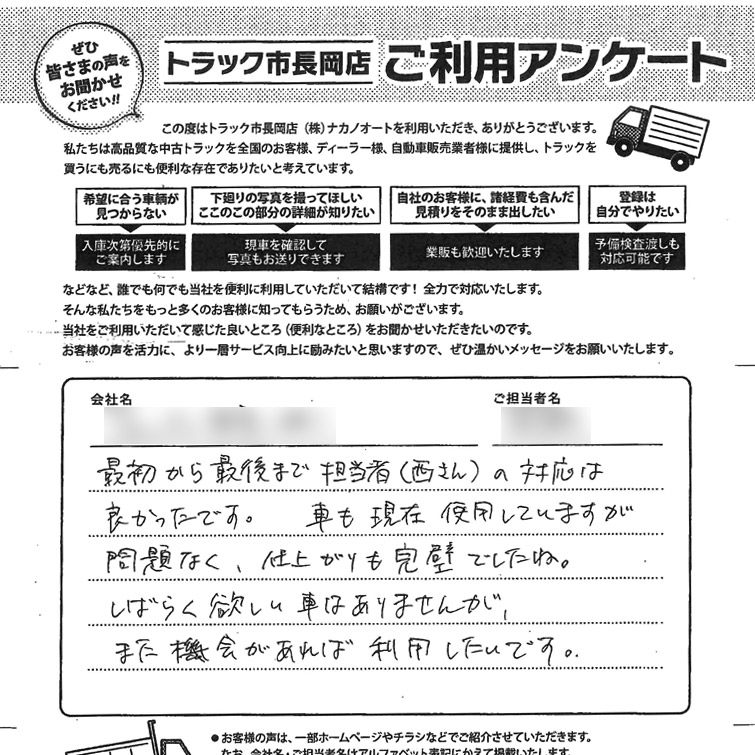 ぜひ
皆さまの声を
お聞かせ
ください!!
トラック市長岡店 ご利用アンケート
この度はトラック市長岡店（株）ナカノオートを利用いただき、ありがとうございます。
私たちは高品質な中古トラックを全国のお客様、ディーラー様、自動車販売業者様に提供し、トラックを
買うにも売るにも便利な存在でありたいと考えています。
希望に合う車輌が
見つからない
入庫次第優先的に
ご案内します
下廻りの写真を撮ってほしい
ここのこの部分の詳細が知りたい
現車を確認して
写真もお送りできます
自社のお客様に、諸経費も含んだ
見積りをそのまま出したい
業販も歓迎いたします
登録は
自分でやりたい
予備検査渡しも
対応可能です
などなど、誰でも何でも当社を便利に利用していただいて結構です！全力で対応いたします。
そんな私たちをもっと多くのお客様に知ってもらうため、お願いがございます。
当社をご利用いただいて感じた良いところ（便利なところ）をお聞かせいただきたいのです。
お客様の声を活力に、より一層サービス向上に励みたいと思いますので、ぜひ温かいメッセージをお願いいたします。
会社名
ご担当者名
最初から最後まで担当者（西さん）の対応は
良かったです。 車も現在使用していますが
問題なく、仕上がりも完璧でしたね。
しばらく欲しい車はありませんが、
また機会があれば利用したいです。
●お客様の声は、一部ホームページやチラシなどでご紹介させていただきます。
なお、会社名・ご担当者名はアルファベット表記にかえて掲載いたします。